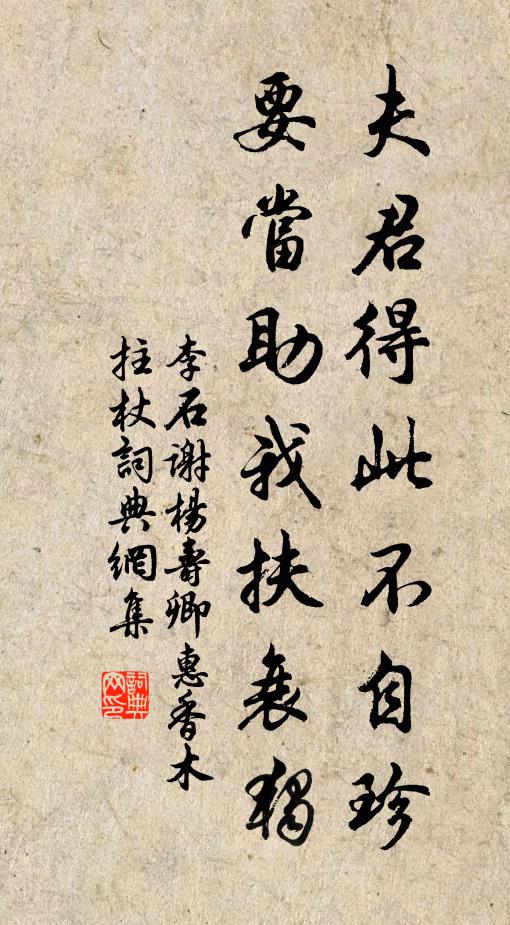 夫君得此不自珍
要當助我扶衰獨
李石謝楊壽卿惠香木
拄杖詞典網集
詞典
网印